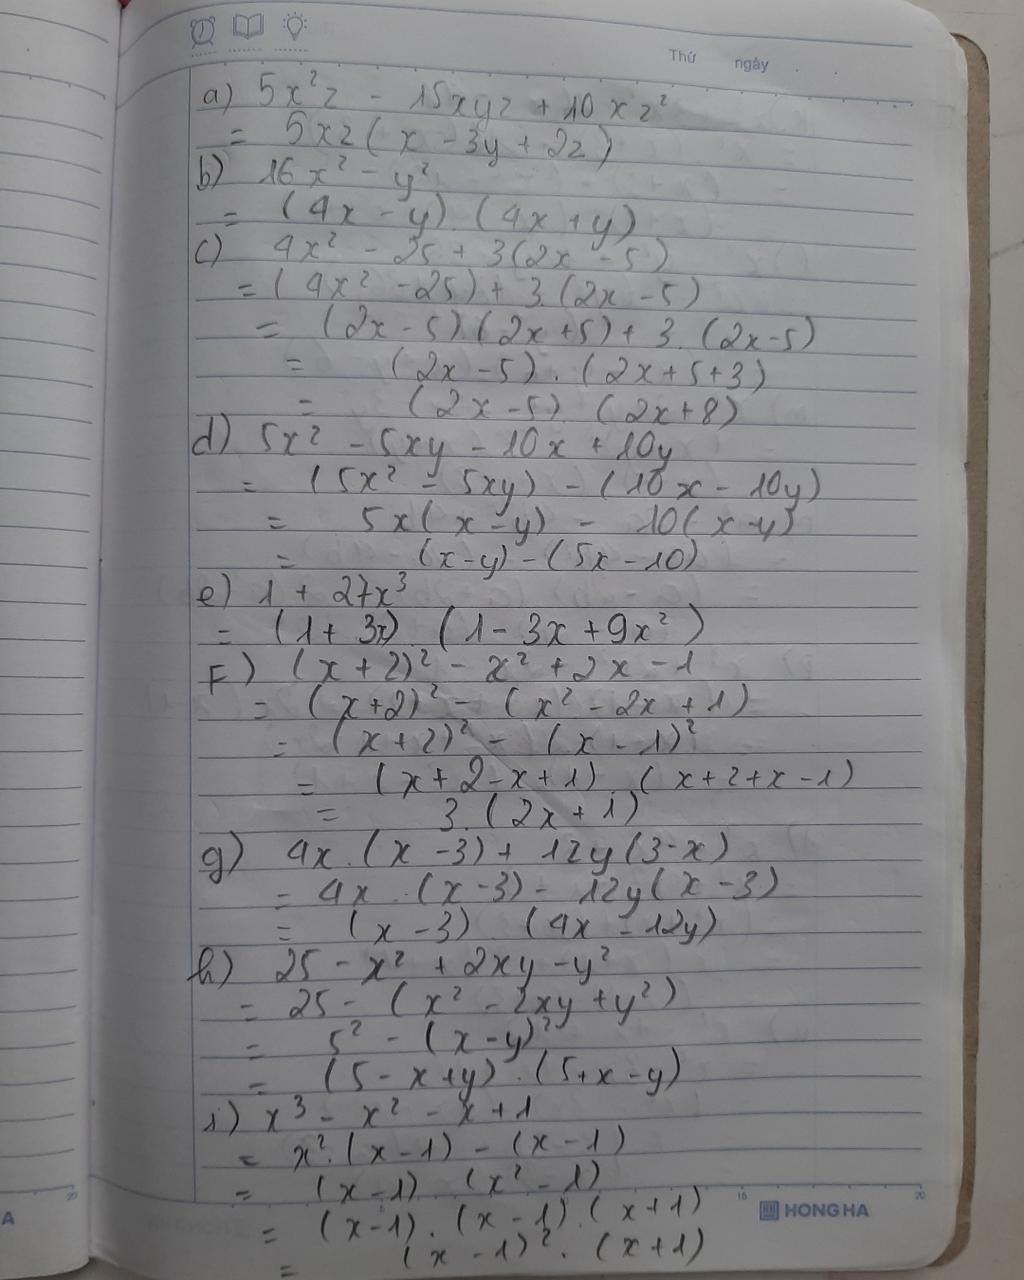 Thứ ngày
a) 5x²z - 15xyz + 10xz²
= 5xz(x - 3y + 2z)
b) 16x² - y²
= (4x - y).(4x + y)
c) 4x² - 25 + 3(2x - 5)
= (4x² - 25) + 3.(2x - 5)
= (2x - 5).(2x + 5) + 3.(2x - 5)
= (2x - 5).(2x + 5 + 3)
= (2x - 5).(2x + 8)
d) 5x² - 5xy - 10x + 10y
= (5x² - 5xy) - (10x - 10y)
= 5x(x - y) - 10(x - y)
= (x - y) - (5x - 10)
e) 1 + 27x³
= (1 + 3x).(1 - 3x + 9x²)
F) (x + 2)² - x² + 2x - 1
= (x + 2)² - (x² - 2x + 1)
= (x + 2)² - (x - 1)²
= (x + 2 - x + 1).(x + 2 + x - 1)
= 3.(2x + 1)
g) 4x.(x - 3) + 12y(3 - x)
= 4x.(x - 3) - 12y(x - 3)
= (x - 3).(4x - 12y)
h) 25 - x² + 2xy - y²
= 25 - (x² - 2xy + y²)
= 5² - (x - y)²
= (5 - x + y).(5 + x - y)
i) x³ - x² - x + 1
= x².(x - 1) - (x - 1)
= (x - 1).(x² - 1)
= (x - 1).(x - 1).(x + 1)
= (x - 1)².(x + 1)
HONG HA